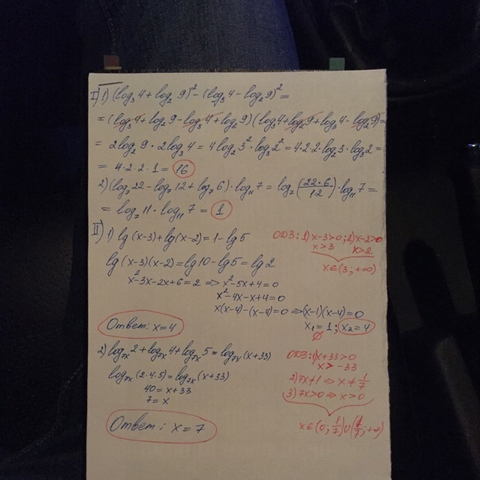 I) 1) (log₃4 + log₂9)² - (log₃4 - log₂9)² =
= (log₃4 + log₂9 - log₃4 + log₂9)(log₃4 + log₂9 + log₃4 - log₂9) =
= 2log₂9 · 2log₃4 = 4log₂3² · log₃2² = 4·2·2 log₂3 · log₃2 =
= 4·2·2·1 = 16
2) (log₇22 - log₇12 + log₇6) · log₁₁7 = log₇(22·6/12) · log₁₁7 =
= log₇11 · log₁₁7 = 1
II) 1) lg(x-3) + lg(x-2) = 1 - lg5
ОДЗ: 1) x-3>0; 2) x-2>0
x>3 x>2
x∈(3; +∞)
lg(x-3)(x-2) = lg10 - lg5 = lg2
x²-3x-2x+6=2 => x²-5x+4=0
x²-4x-x+4=0
x(x-4)-(x-4)=0 => (x-1)(x-4)=0
x₁=1; x₂=4
∅
Ответ: x=4
2) log₇ₓ2 + log₇ₓ4 + log₇ₓ5 = log₇ₓ(x+33)
ОДЗ: 1) x+33>0
x>-33
log₇ₓ(2·4·5) = log₇ₓ(x+33)
2) 7x≠1 => x≠1/7
40 = x+33
3) 7x>0 => x>0
7 = x
x∈(0; 1/7)∪(1/7; +∞)
Ответ: x = 7